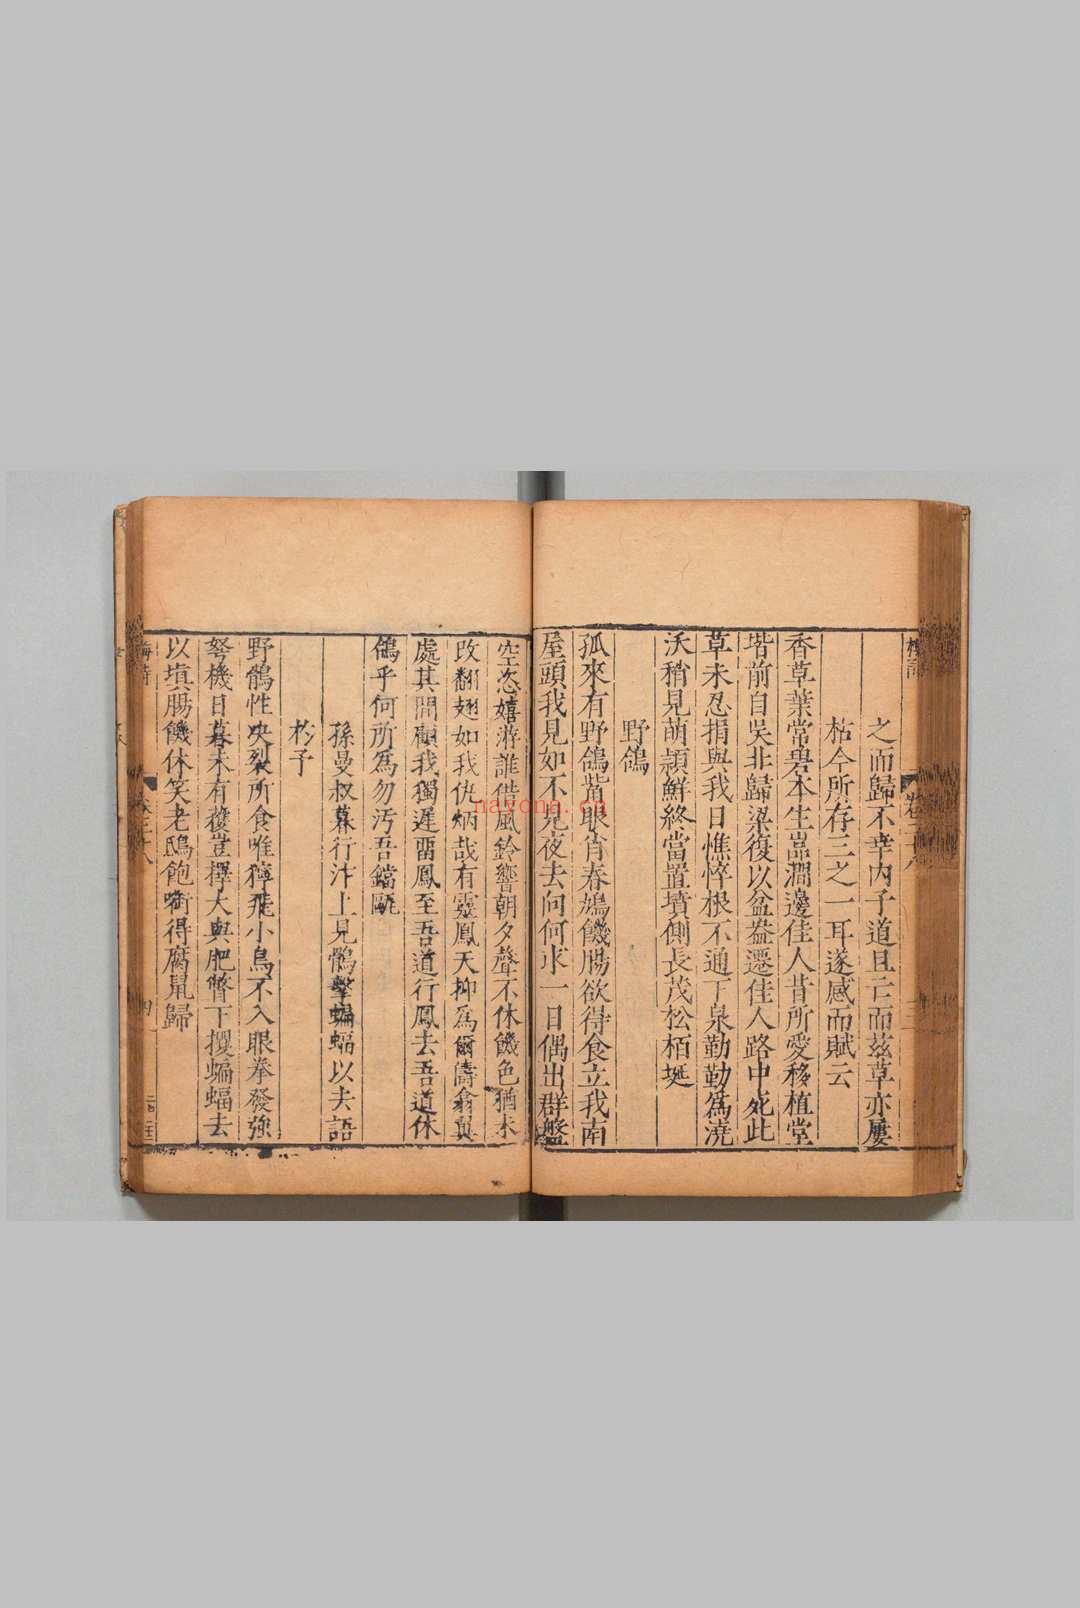 之而歸不幸内子道且亡而茲草亦屢
枯今所存三之一耳遂感而賦云
香草葉常碧本生嵓澗邊佳人昔所愛移植堂
堦前自吳北歸梁復以盆盎遷佳人路中死此
草未忍捐與我日憔悴根不通下泉勤勤爲澆
沃稍見萌頴鮮終當置墳側長茂松栢埏
野鴿
孤來有野鴿觜眼肖春鳩饑腸欲得食立我南
屋頭我見如不見夜去向何求一日偶出群盤
空恣嬉游誰借風鈴響朝夕聲不休饑色猶未
改翻翅如我仇炳哉有靈鳳天抑爲爾儔翕翼
處其間顧我獨遲留鳳至吾道行鳳去吾道休
鴿乎何所爲勿污吾鐺甌
孫曼叔暮行汴上見鶻擊蝙蝠以去語
於予
野鶻性决裂所食唯獰飛小鳥不入眼拳發強
弩機日暮未有獲豈擇大與肥瞥下攫蝙蝠去
以塡腸饑休笑老鴟飽啣得腐鼠歸
梅詩
卷二十八
四
nayona.cn